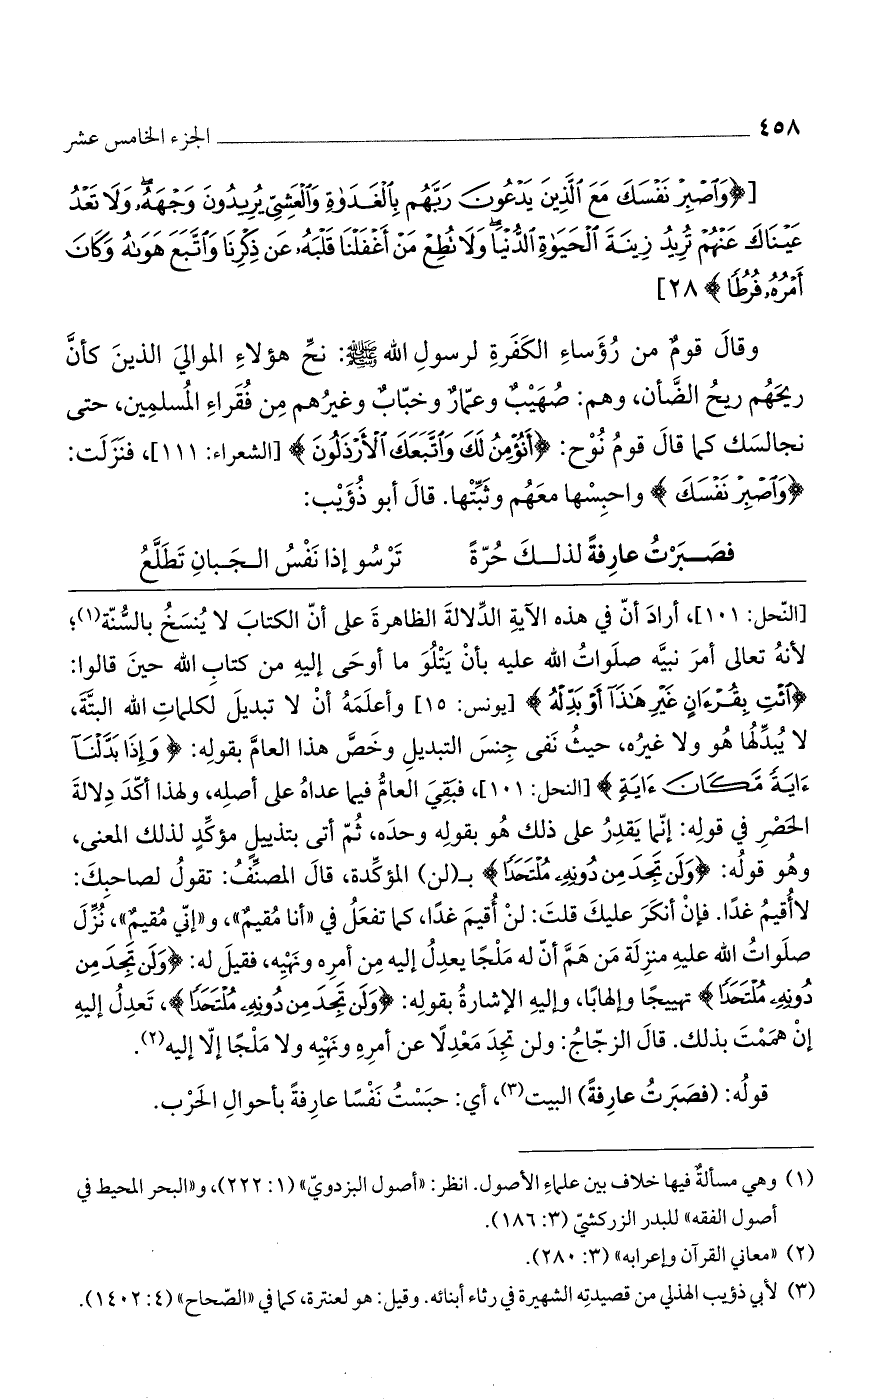 ٤٥٨ الجزء الخامس عشر
[﴿وَٱصۡبِرۡ نَفۡسَكَ مَعَ ٱلَّذِينَ يَدۡعُونَ رَبَّهُم بِٱلۡغَدَوٰةِ وَٱلۡعَشِيِّ يُرِيدُونَ وَجۡهَهُۥۖ وَلَا تَعۡدُ
عَيۡنَاكَ عَنۡهُمۡ تُرِيدُ زِينَةَ ٱلۡحَيَوٰةِ ٱلدُّنۡيَاۖ وَلَا تُطِعۡ مَنۡ أَغۡفَلۡنَا قَلۡبَهُۥ عَن ذِكۡرِنَا وَٱتَّبَعَ هَوَىٰهُ وَكَانَ
أَمۡرُهُۥ فُرُطٗا﴾ ٢٨]
وقالَ قومٌ من رُؤَساءِ الكَفَرةِ لرسولِ الله ﷺ: نحِّ هؤلاءِ المواليَ الذينَ كأنَّ
ريحَهُم ريحُ الضَّأن، وهم: صُهَيْبٌ وعمّارٌ وخبّابٌ وغيرُهم مِن فُقَراءِ المُسلمِين، حتى
نجالسَك كما قالَ قومُ نُوْح: ﴿أَنُؤۡمِنُ لَكَ وَٱتَّبَعَكَ ٱلۡأَرۡذَلُونَ﴾ [الشعراء: ١١١]، فنَزَلَت:
﴿وَٱصۡبِرۡ نَفۡسَكَ﴾ واحبِسْها معَهُم وثَبِّتْها. قالَ أبو ذُؤَيْب:
فصَـــبَرْتُ عارِفةً لذلــكَ حُرّةً تَرْسُو إذا نَفْسُ الـجَبانِ تَطَلَّعُ
[النّحل: ١٠١]، أرادَ أنّ في هذه الآيةِ الدِّلالةَ الظاهرةَ على أنّ الكتابَ لا يُنسَخُ بالسُّنّة(١)؛
لأنهُ تعالى أمرَ نبيَّه صلَواتُ الله عليه بأنْ يَتْلُوَ ما أوحَى إليهِ من كتابِ الله حينَ قالوا:
﴿ٱئۡتِ بِقُرۡءَانٍ غَيۡرِ هَٰذَآ أَوۡ بَدِّلۡهُ﴾ [يونس: ١٥] وأعلَمَهُ أنْ لا تبديلَ لكلماتِ الله البتَّةَ،
لا يُبدِّلُها هُو ولا غيرُه، حيثُ نَفى جِنسَ التبديلِ وخَصَّ هذا العامَّ بقولِه: ﴿وَإِذَا بَدَّلۡنَآ
ءَايَةٗ مَّكَانَ ءَايَةٖ﴾ [النحل: ١٠١]، فبَقِيَ العامُّ فيما عداهُ على أصلِه، ولهذا أكّدَ دِلالةَ
الحَصْرِ في قولِه: إنّما يَقدِرُ على ذلك هُو بقولِه وحدَه، ثُمّ أتى بتذييلٍ مؤكِّدٍ لذلك المعنى،
وهُو قولُه: ﴿وَلَن تَجِدَ مِن دُونِهِۦ مُلۡتَحَدٗا﴾ بـ(لن) المؤكِّدة، قالَ المصنِّفُ: تقولُ لصاحبِكَ:
لاأُقيمُ غدًا. فإنْ أنكَرَ عليكَ قلتَ: لنْ أُقيمَ غدًا، كما تفعَلُ في «أنا مُقيمٌ»، و«إنّي مُقيمٌ»، نُزِّلَ
صلَواتُ الله عليهِ منزِلةَ مَن هَمَّ أنّ له مَلْجًا يعدِلُ إليه مِن أمرِه ونَهْيِه، فقيلَ له: ﴿وَلَن تَجِدَ مِن
دُونِهِۦ مُلۡتَحَدٗا﴾ تهييجًا وإلهابًا، وإليهِ الإشارةُ بقولِه: ﴿وَلَن تَجِدَ مِن دُونِهِۦ مُلۡتَحَدٗا﴾، تَعدِلُ إليهِ
إنْ هممْتَ بذلك. قالَ الزجّاجُ: ولن تجِدَ مَعْدِلًا عن أمرِهِ ونَهْيِه ولا مَلْجًا إلّا إليه(٢).
قولُه: (فصَبَرتُ عارِفةً) البيت(٣)، أي: حبَسْتُ نَفْسًا عارِفةً بأحوالِ الحَرْب.
(١) وهي مسألةٌ فيها خلاف بين علماءِ الأصول. انظر: «أصول البزدويّ» (١: ٢٢٢)، و«البحر المحيط في
أصول الفقه» للبدر الزركشيّ (٣: ١٨٦).
(٢) «معاني القرآن وإعرابه» (٣: ٢٨٠).
(٣) لأبي ذؤيب الهذلي من قصيدتِه الشهيرة في رثاء أبنائه. وقيل: هو لعنترة، كما في «الصّحاح» (٤: ١٤٠٢).